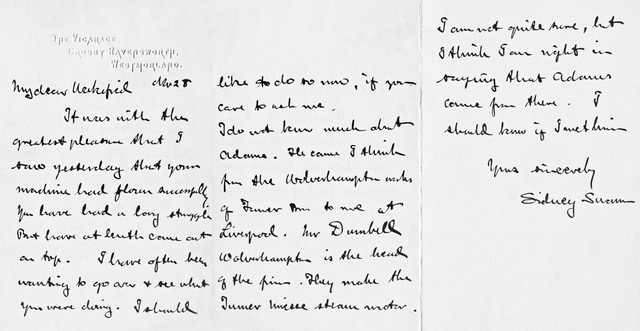 THE VICARAGE,
CROSBY RAVENSWORTH,
WESTMORLAND.
My dear Wakefield Nov 28
It was with the
greatest pleasure that I
saw yesterday that your
machine had flown successfully
You have had a long struggle
But have at length come out
on top. I have often been
wanting to go over & see what
you were doing. I should
like to do so now, if you
care to ask me.
I do not know much about
Adams. He came I think
from the Wolverhampton works
of Turner Bros to me at
Liverpool. Mr Dumbell
Wolverhampton is the head
of the firm. They make the
Turner Miesse steam motor.
I am not quite sure, but
I think I am right in
saying that Adams
came from there. I
should know if I met him
Yours sincerely
Sidney Swann